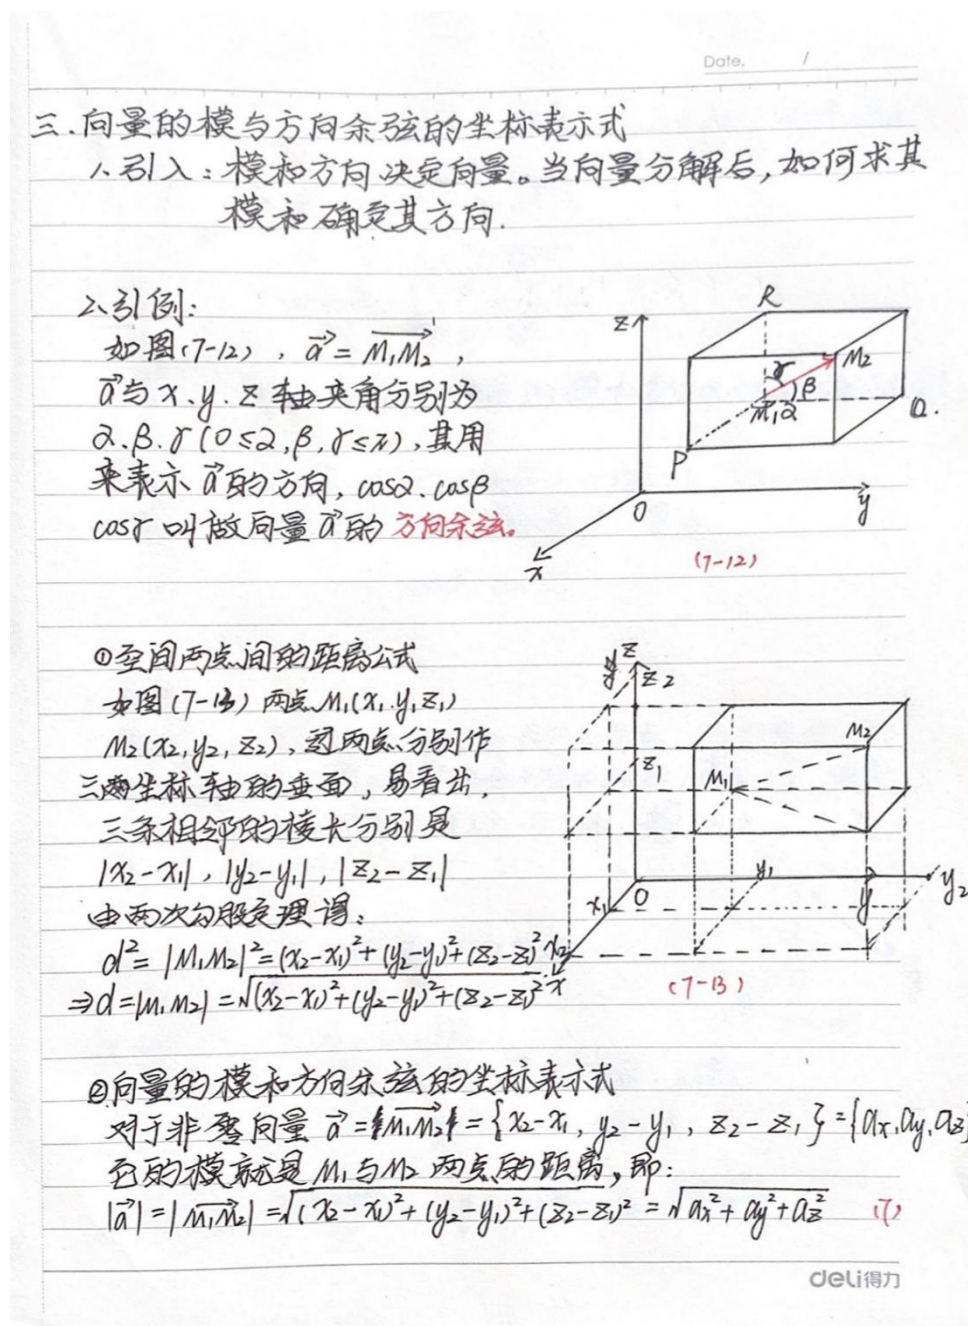 Date. /
三.向量的模与方向余弦的坐标表示式
1.引入:模和方向决定向量。当向量分解后,如何求其
模和确定其方向.
2.引例:
如图(7-12),a⃗=M₁M₂⃗,
a⃗与x.y.z轴夹角分别为
α.β.γ(0≤α,β,γ≤π),其用
来表示a⃗的方向,cosα.cosβ
cosγ叫做向量a⃗的方向余弦。
R
z
M₂
γ
β
M₁
α
Q.
P
O
y
x
(7-12)
①空间两点间的距离公式
如图(7-13)两点M₁(x₁.y₁z₁)
M₂(x₂,y₂,z₂),过两点分别作
三两坐标轴的垂面,易看出,
三条相邻的棱长分别是
|x₂-x₁|,|y₂-y₁|,|z₂-z₁|
由两次勾股定理得:
d²=|M₁M₂|²=(x₂-x₁)²+(y₂-y₁)²+(z₂-z₁)²
⇒d=|M₁M₂|=√(x₂-x₁)²+(y₂-y₁)²+(z₂-z₁)²
z
z₂
M₂
z₁
M₁
y₁
O
x₁
y
y₂
x₂
x
(7-13)
②向量的模和方向余弦的坐标表示式
对于非零向量a⃗=M₁M₂⃗={x₂-x₁,y₂-y₁,z₂-z₁}={ax,ay,az}
它的模就是M₁与M₂两点的距离,即:
|a⃗|=|M₁M₂⃗|=√(x₂-x₁)²+(y₂-y₁)²+(z₂-z₁)²=√ax²+ay²+az² (7)
deli得力